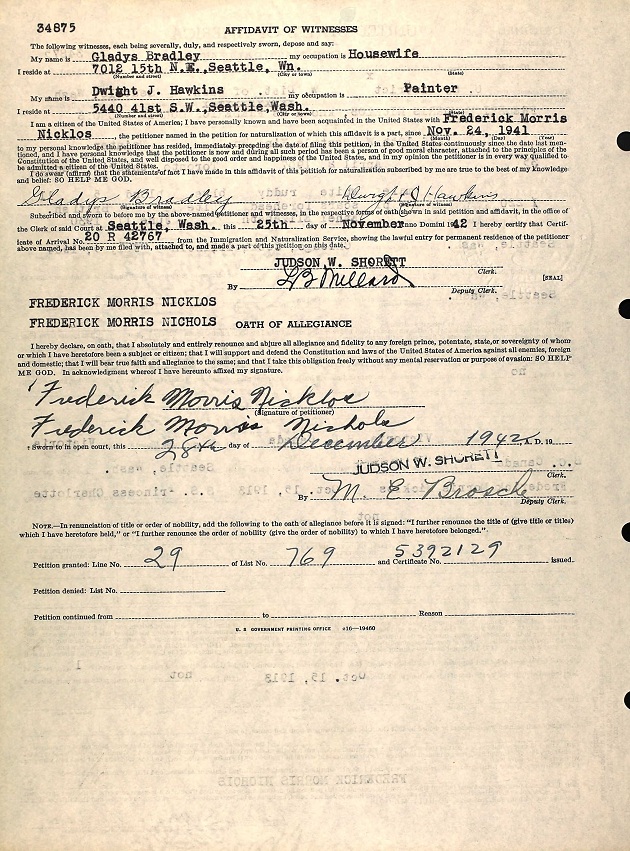 34875
AFFIDAVIT OF WITNESSES
The following witnesses, each being severally, duly, and respectively sworn, depose and say:
My name is Gladys Bradley my occupation is Housewife
I reside at 7012 15th N.E., Seattle, Wn.
(Number and street) (City or town) (State)
My name is Dwight J. Hawkins my occupation is Painter
I reside at 5440 41st S.W., Seattle, Wash.
(Number and street) (City or town) (State)
I am a citizen of the United States of America; I have personally known and have been acquainted in the United States with Frederick Morris
Nicklos, the petitioner named in the petition for naturalization of which this affidavit is a part, since Nov. 24, 1941
(Month) (Day) (Year)
to my personal knowledge the petitioner has resided, immediately preceding the date of filing this petition, in the United States continuously since the date last men-
tioned, and I have personal knowledge that the petitioner is now and during all such period has been a person of good moral character, attached to the principles of the
Constitution of the United States, and well disposed to the good order and happiness of the United States, and in my opinion the petitioner is in every way qualified to
be admitted a citizen of the United States.
I do swear (affirm) that the statements of fact I have made in this affidavit of this petition for naturalization subscribed by me are true to the best of my knowledge
and belief: SO HELP ME GOD.
Gladys Bradley Dwight J Hawkins
(Signature of witness) (Signature of witness)
Subscribed and sworn to before me by the above-named petitioner and witnesses, in the respective forms of oath shown in said petition and affidavit, in the office of
the Clerk of said Court at Seattle, Wash. this 25th day of November Anno Domini 1942 I hereby certify that Certif-
icate of Arrival No. 20 R 42767 from the Immigration and Naturalization Service, showing the lawful entry for permanent residence of the petitioner
above named, has been by me filed with, attached to, and made a part of this petition on this date.
JUDSON W. SHORETT
Clerk.
By L B Millard [SEAL]
Deputy Clerk.
FREDERICK MORRIS NICKLOS
FREDERICK MORRIS NICHOLS OATH OF ALLEGIANCE
I hereby declare, on oath, that I absolutely and entirely renounce and abjure all allegiance and fidelity to any foreign prince, potentate, state, or sovereignty of whom
or which I have heretofore been a subject or citizen; that I will support and defend the Constitution and laws of the United States of America against all enemies, foreign
and domestic; that I will bear true faith and allegiance to the same; and that I take this obligation freely without any mental reservation or purpose of evasion: SO HELP
ME GOD. In acknowledgment whereof I have hereunto affixed my signature.
Frederick Morris Nicklos
(Signature of petitioner)
Frederick Morris Nichols
Sworn to in open court, this 28th day of December 1942, A. D. 19
JUDSON W. SHORETT
Clerk.
By M. E. Brosche
Deputy Clerk.
NOTE.—In renunciation of title or order of nobility, add the following to the oath of allegiance before it is signed: "I further renounce the title of (give title or titles)
which I have heretofore held," or "I further renounce the order of nobility (give the order of nobility) to which I have heretofore belonged."
Petition granted: Line No. 29 of List No. 769 and Certificate No. 5392129 issued.
Petition denied: List No.
Petition continued from to Reason
U. S. GOVERNMENT PRINTING OFFICE 16—19460